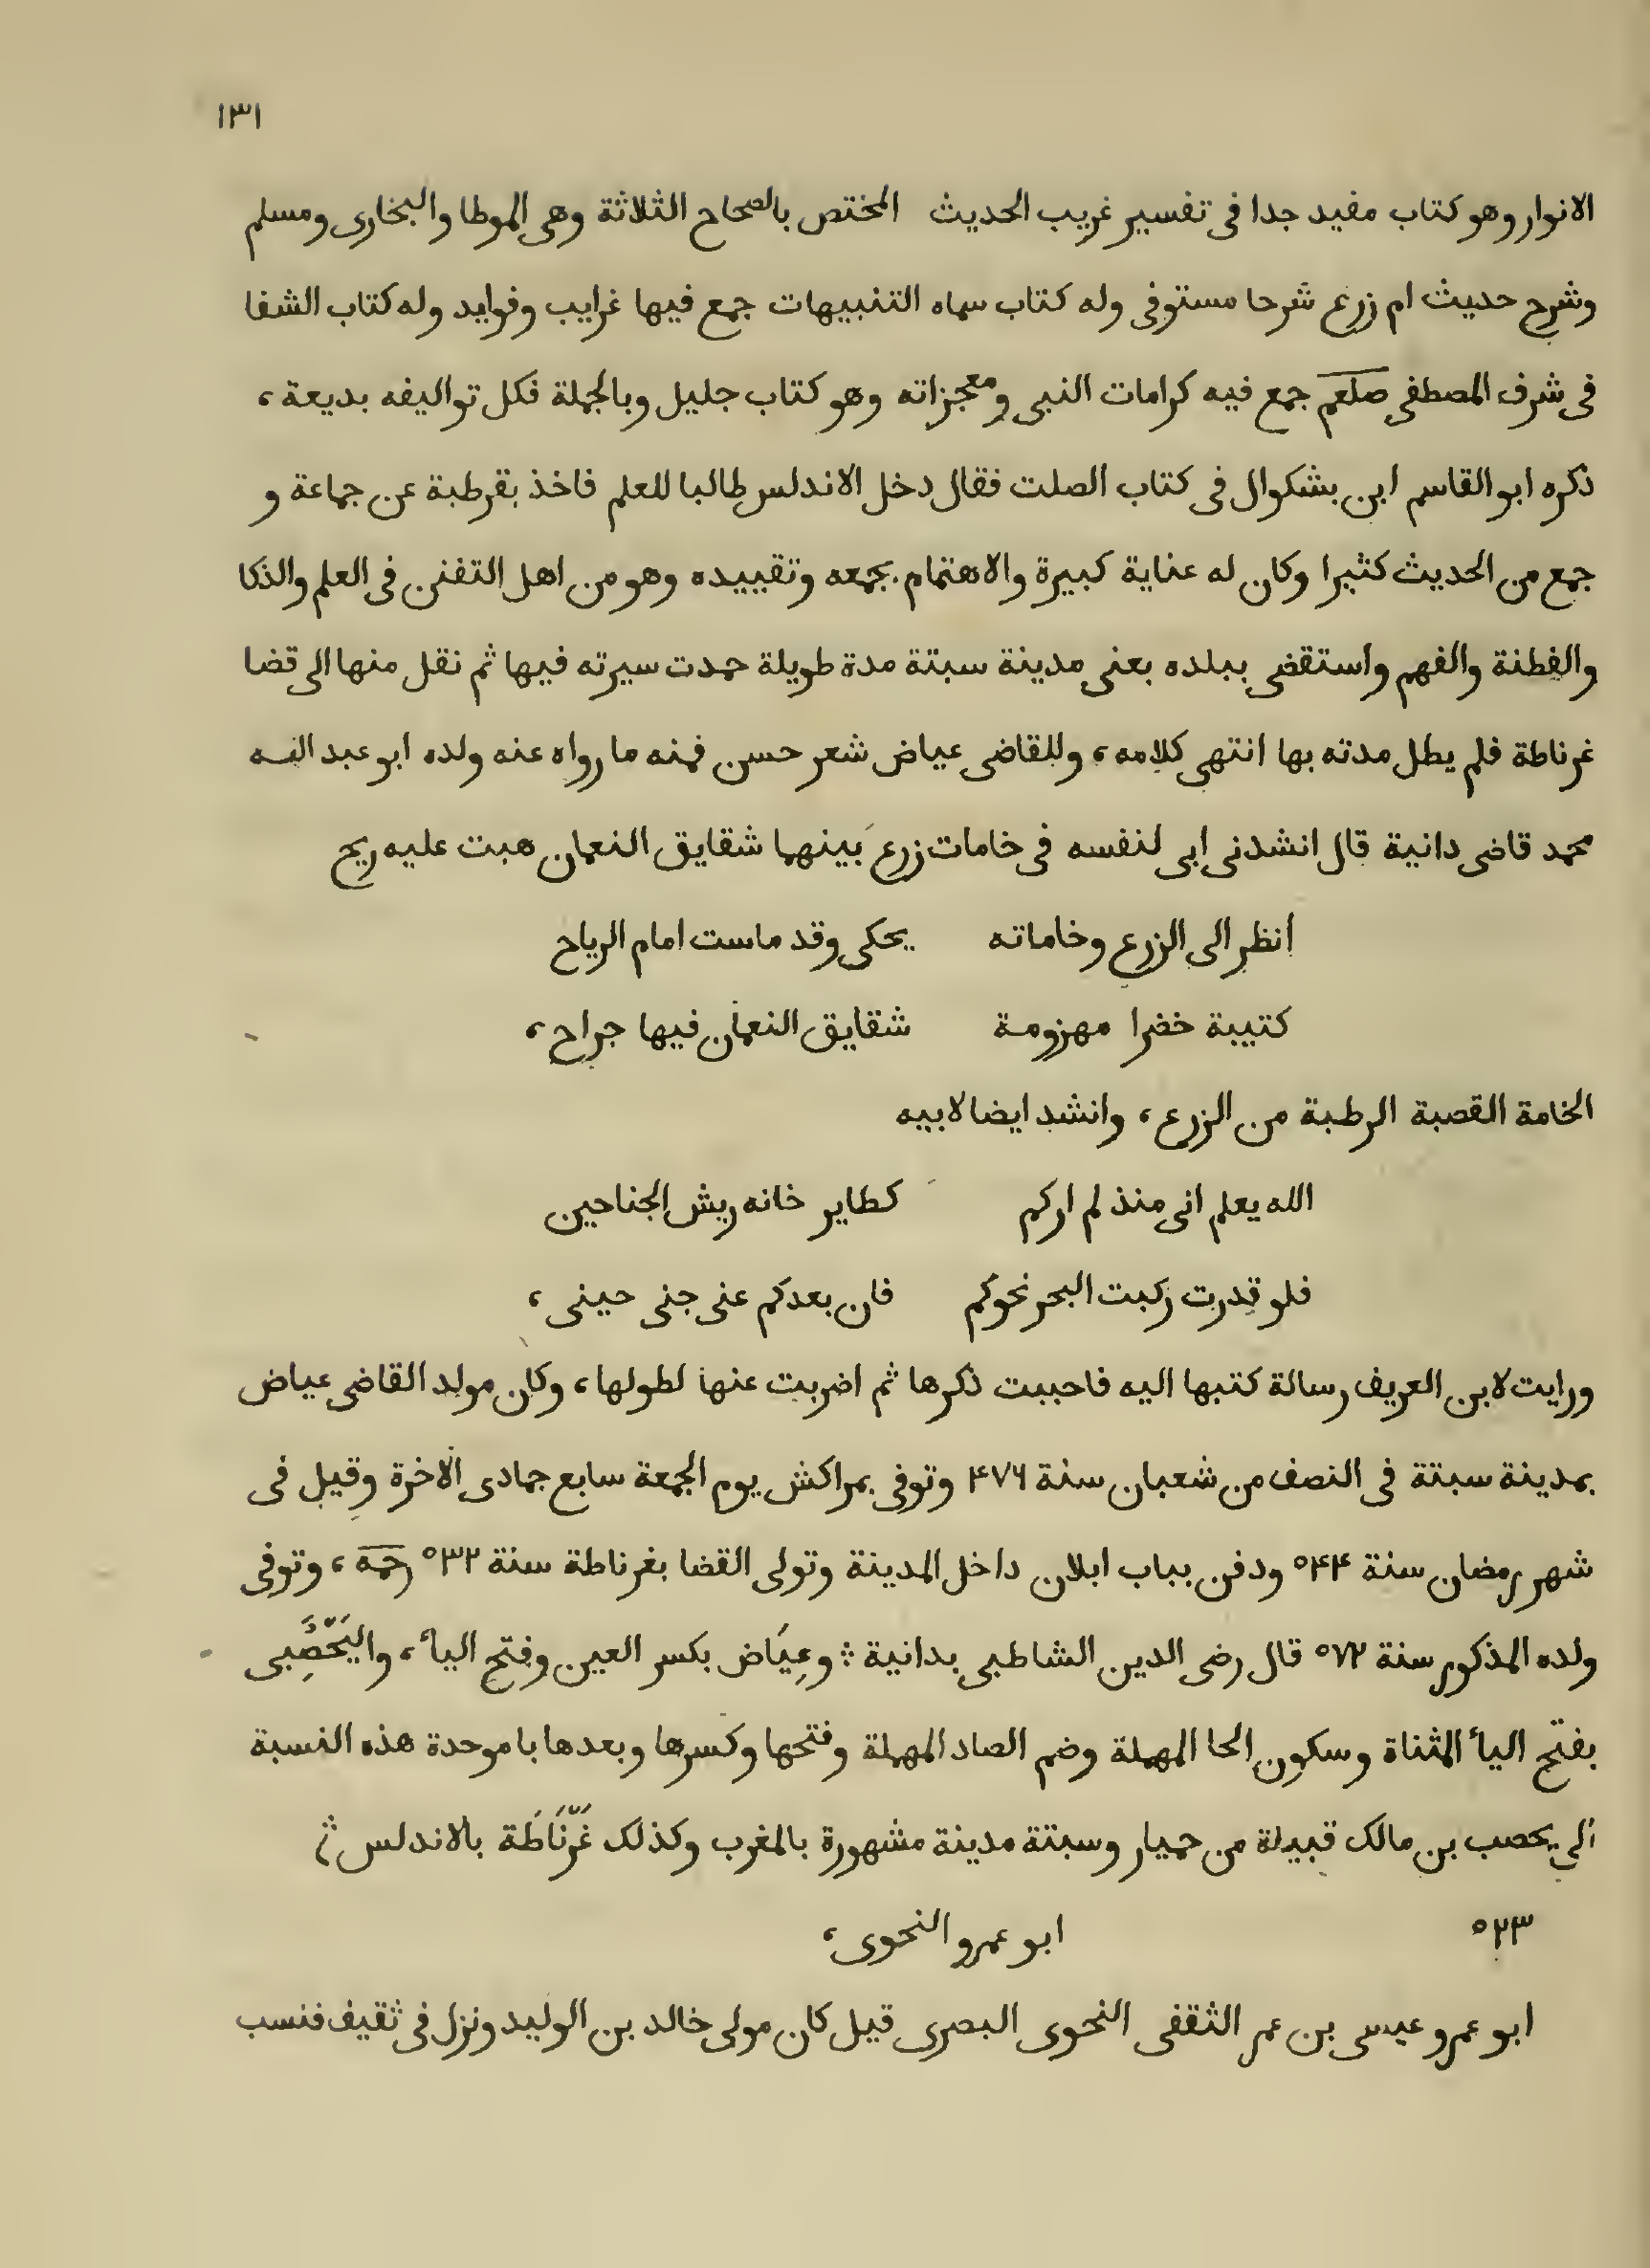 ١٣١
الانوار وهو كتاب مفيد جدا فى تفسير غريب الحديث المختص بالصحاح الثلاثة وهى الموطا والبخارى ومسلم
وشرح حديث ام زرع شرحا مستوفى وله كتاب سماه التنبيهات جمع فيها غرايب وفوايد وله كتاب الشفا
فى شرف المصطفى صلعم جمع فيه كرامات النبى ومعجزاته وهو كتاب جليل وبالجملة فكل تواليفه بديعة ،
ذكره ابو القاسم ابن بشكوال فى كتاب الصلت فقال دخل الاندلس طالبا للعلم فاخذ بقرطبة عن جماعة و
جمع من الحديث كثيرا وكان له عناية كبيرة والاهتمام بجمعه وتقييده وهو من اهل التفنن فى العلم والذكا
والفطنة والفهم واستقضى ببلده بعنى مدينة سبتة مدة طويلة حمدت سيرته فيها ثم نقل منها الى قضا
غرناطة فلم يطل مدته بها انتهى كلامه ، وللقاضى عياض شعر حسن فمنه ما رواه عنه ولده ابو عبد الله
محمد قاضى دانية قال انشدنى ابى لنفسه فى خامات زرع بينهما شقايق النعمان هبت عليه ريح
انظر الى الزرع وخاماته يحكى وقد ماست امام الرياح
كتيبة خضرا مهزومة شقايق النعمان فيها جراح ،
الخامة القصبة الرطبة من الزرع ، وانشد ايضا لابيه
الله يعلم انى منذ لم اركم كطاير خانه ريش الجناحين
فلو قدرت ركبت البحر نحوكم فان بعدكم عنى جنى حينى ،
ورايت لابن العريف رسالة كتبها اليه فاحببت ذكرها ثم اضربت عنها لطولها ، وكان مولد القاضى عياض
بمدينة سبتة فى النصف من شعبان سنة ۴٧٦ وتوفى بمراكش يوم الجمعة سابع جمادى الاخرة وقيل فى
شهر رمضان سنة ۵۴۴ ودفن بباب ابلان داخل المدينة وتولى القضا بغرناطة سنة ٥٣٢ رحمه ، وتوفى
ولده المذكور سنة ٥٧٢ قال رضى الدين الشاطبى بدانية ؛ وعِيَاض بكسر العين وفتح اليأ ، واليَحْصُِبى
بفتح اليأ المثناة وسكون الحا المهملة وضم الصاد المهملة وفتحها وكسرها وبعدها با موحدة هذه النسبة
الى يحصب بن مالك قبيلة من حميار وسبتة مدينة مشهورة بالمغرب وكذلك غَرْنَاطَة بالاندلس ؛
٥٢٣ ابو عمرو النحوى ،
ابو عمرو عيسى بن عمر الثقفى النحوى البصرى قيل كان مولى خالد بن الوليد ونزل فى ثقيف فنسب